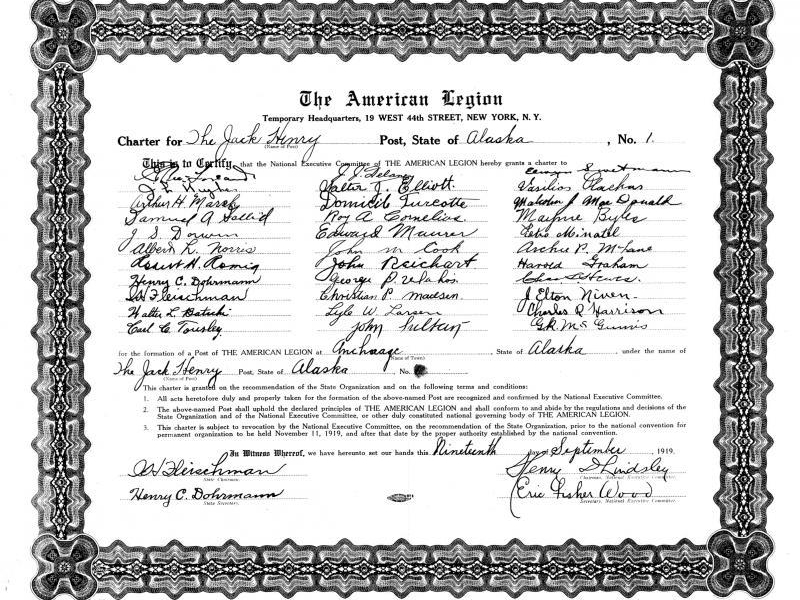 The American Legion
Temporary Headquarters, 19 WEST 44th STREET, NEW YORK, N. Y.
Charter for The Jack Henry Post, State of Alaska, No. 1.
(Name of Post)
This is to Certify, that the National Executive Committee of THE AMERICAN LEGION hereby grants a charter to
J. J. Delaney
J L Hughes Walter J. Elliott. Vasilios
Arthur H. Marsh Domicile Turcotte Malcolm J Mac Donald
Samuel A Roy A Cornelius. Mayme
J S Edward Maurer
Albert L. Norris John M Cook Archie P. McLane
Robert H. Romig John Reichart Harold Graham
Henry C. Dohrmann George P.
W Fleischman Christian P. Madsen. J Elton Niven.
Walter L. Lyle W. Larsen Charles R Harrison
Carl C. Tousley. John G.R. McGinnis
for the formation of a Post of THE AMERICAN LEGION at Anchorage, State of Alaska, under the name of
(Name of Town)
The Jack Henry Post, State of Alaska, No.
(Name of Post)
This charter is granted on the recommendation of the State Organization and on the following terms and conditions:
1. All acts heretofore duly and properly taken for the formation of the above-named Post are recognized and confirmed by the National Executive Committee.
2. The above-named Post shall uphold the declared principles of THE AMERICAN LEGION and shall conform to and abide by the regulations and decisions of the
State Organization and of the National Executive Committee, or other duly constituted national governing body of THE AMERICAN LEGION.
3. This charter is subject to revocation by the National Executive Committee, on the recommendation of the State Organization, prior to the national convention for
permanent organization to be held November 11, 1919, and after that date by the proper authority established by the national convention.
In Witness Whereof, we have hereunto set our hands this Nineteenth day September 1919.
W Fleischman Henry D Lindsley
State Chairman. Chairman, National Executive Committee.
Henry C. Dohrmann Eric Fisher Wood
State Secretary. Secretary, National Executive Committee.